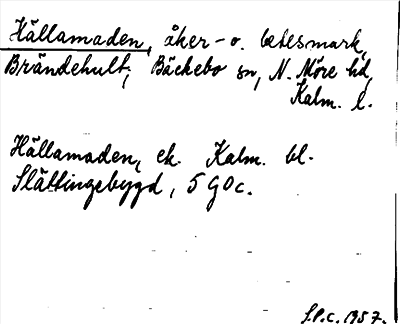 Hällamaden, åker- o. betesmark,
Brändehult, Bäckebo sn, N. Möre hd,
Kalm. l.
Hällamaden, ek. Kalm. bl.
Slättingebygd, 5 G 0 c.
S.P.C. 1957.